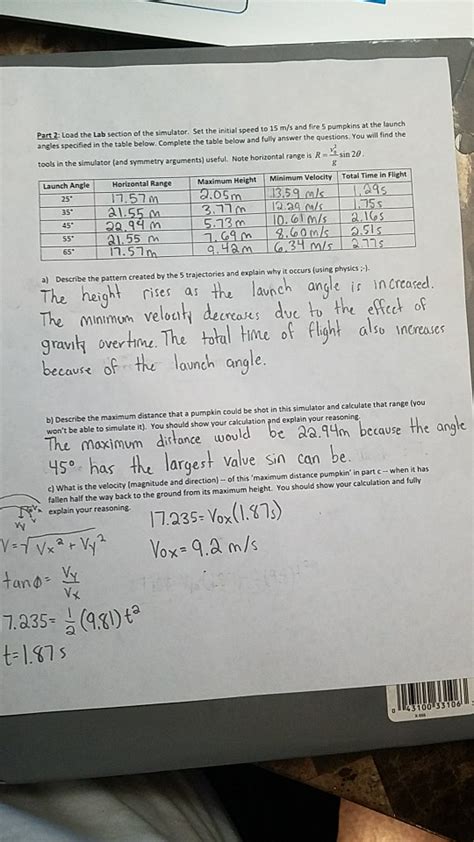 Part 2: Load the Lab section of the simulator. Set the initial speed to 15 m/s and fire 5 pumpkins at the launch
angles specified in the table below. Complete the table below and fully answer the questions. You will find the
tools in the simulator (and symmetry arguments) useful. Note horizontal range is R = v₀²/g sin 2θ.
Launch Angle Horizontal Range Maximum Height Minimum Velocity Total Time in Flight
25° 17.57m 2.05m 13.59 m/s 1.29s
35° 21.55 m 3.77m 12.29 m/s 1.75s
45° 22.94 m 5.73m 10.61 m/s 2.16s
55° 21.55 m 7.69m 8.60m/s 2.51s
65° 17.57m 9.42m 6.34 m/s 2.77s
a) Describe the pattern created by the 5 trajectories and explain why it occurs (using physics ;-).
The height rises as the launch angle is increased.
The minimum velocity decreases due to the effect of
gravity overtime. The total time of flight also increases
because of the launch angle.
b) Describe the maximum distance that a pumpkin could be shot in this simulator and calculate that range (you
won't be able to simulate it). You should show your calculation and explain your reasoning.
The maximum distance would be 22.94m because the angle
45° has the largest value sin can be.
c) What is the velocity (magnitude and direction) – of this 'maximum distance pumpkin' in part c – when it has
fallen half the way back to the ground from its maximum height. You should show your calculation and fully
explain your reasoning.
17.235=Vox(1.87s)
V=√Vx²+Vy²
Vox=9.2 m/s
tanΦ= Vy/Vx
7.235= 1/2 (9.81)t²
t=1.87s
0 43100 33106